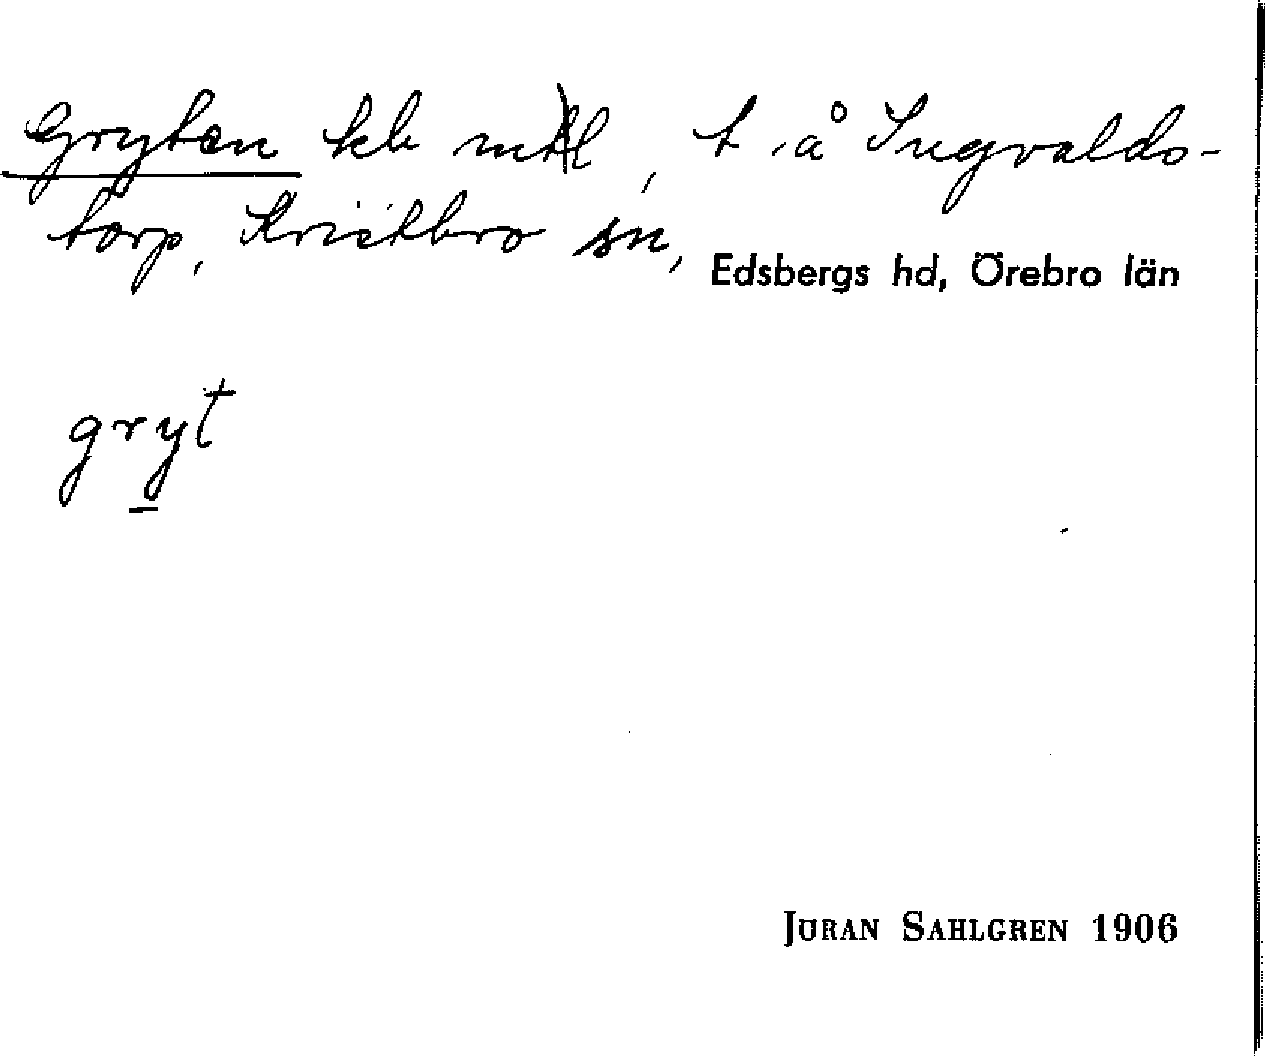 Gryten kb mtl, t. å Ingvalds-
torp, Kvistbro sn,
Edsbergs hd, Örebro län
gryt
JÖRAN SAHLGREN 1906